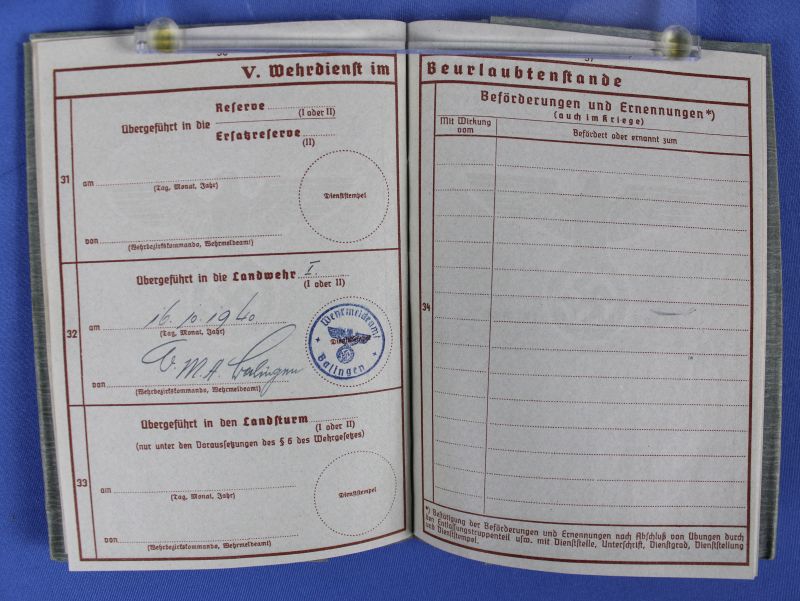 36
V. Wehrdienst im
31
Übergeführt in die
Reserve (I oder II)
Ersatzreserve (II)
am
(Tag, Monat, Jahr)
Dienststempel
von
(Wehrbezirkskommando, Wehrmeldeamt)
32
Übergeführt in die Landwehr I.
(I oder II)
am 16.10.1940
(Tag, Monat, Jahr)
Wehrmeldeamt
Dienststempel
Balingen
W.M.A. Balingen
von
(Wehrbezirkskommando, Wehrmeldeamt)
33
Übergeführt in den Landsturm
(I oder II)
(nur unter den Voraussetzungen des § 6 des Wehrgesetzes)
am
(Tag, Monat, Jahr)
Dienststempel
von
(Wehrbezirkskommando, Wehrmeldeamt)
37
Beurlaubtenstande
Beförderungen und Ernennungen*)
(auch im Kriege)
Mit Wirkung vom
Befördert oder ernannt zum
34
*) Bestätigung der Beförderungen und Ernennungen nach Abschluß von Übungen durch
den Entlassungstruppenteil usw. mit Dienststelle, Unterschrift, Dienstgrad, Dienststellung
und Dienststempel.